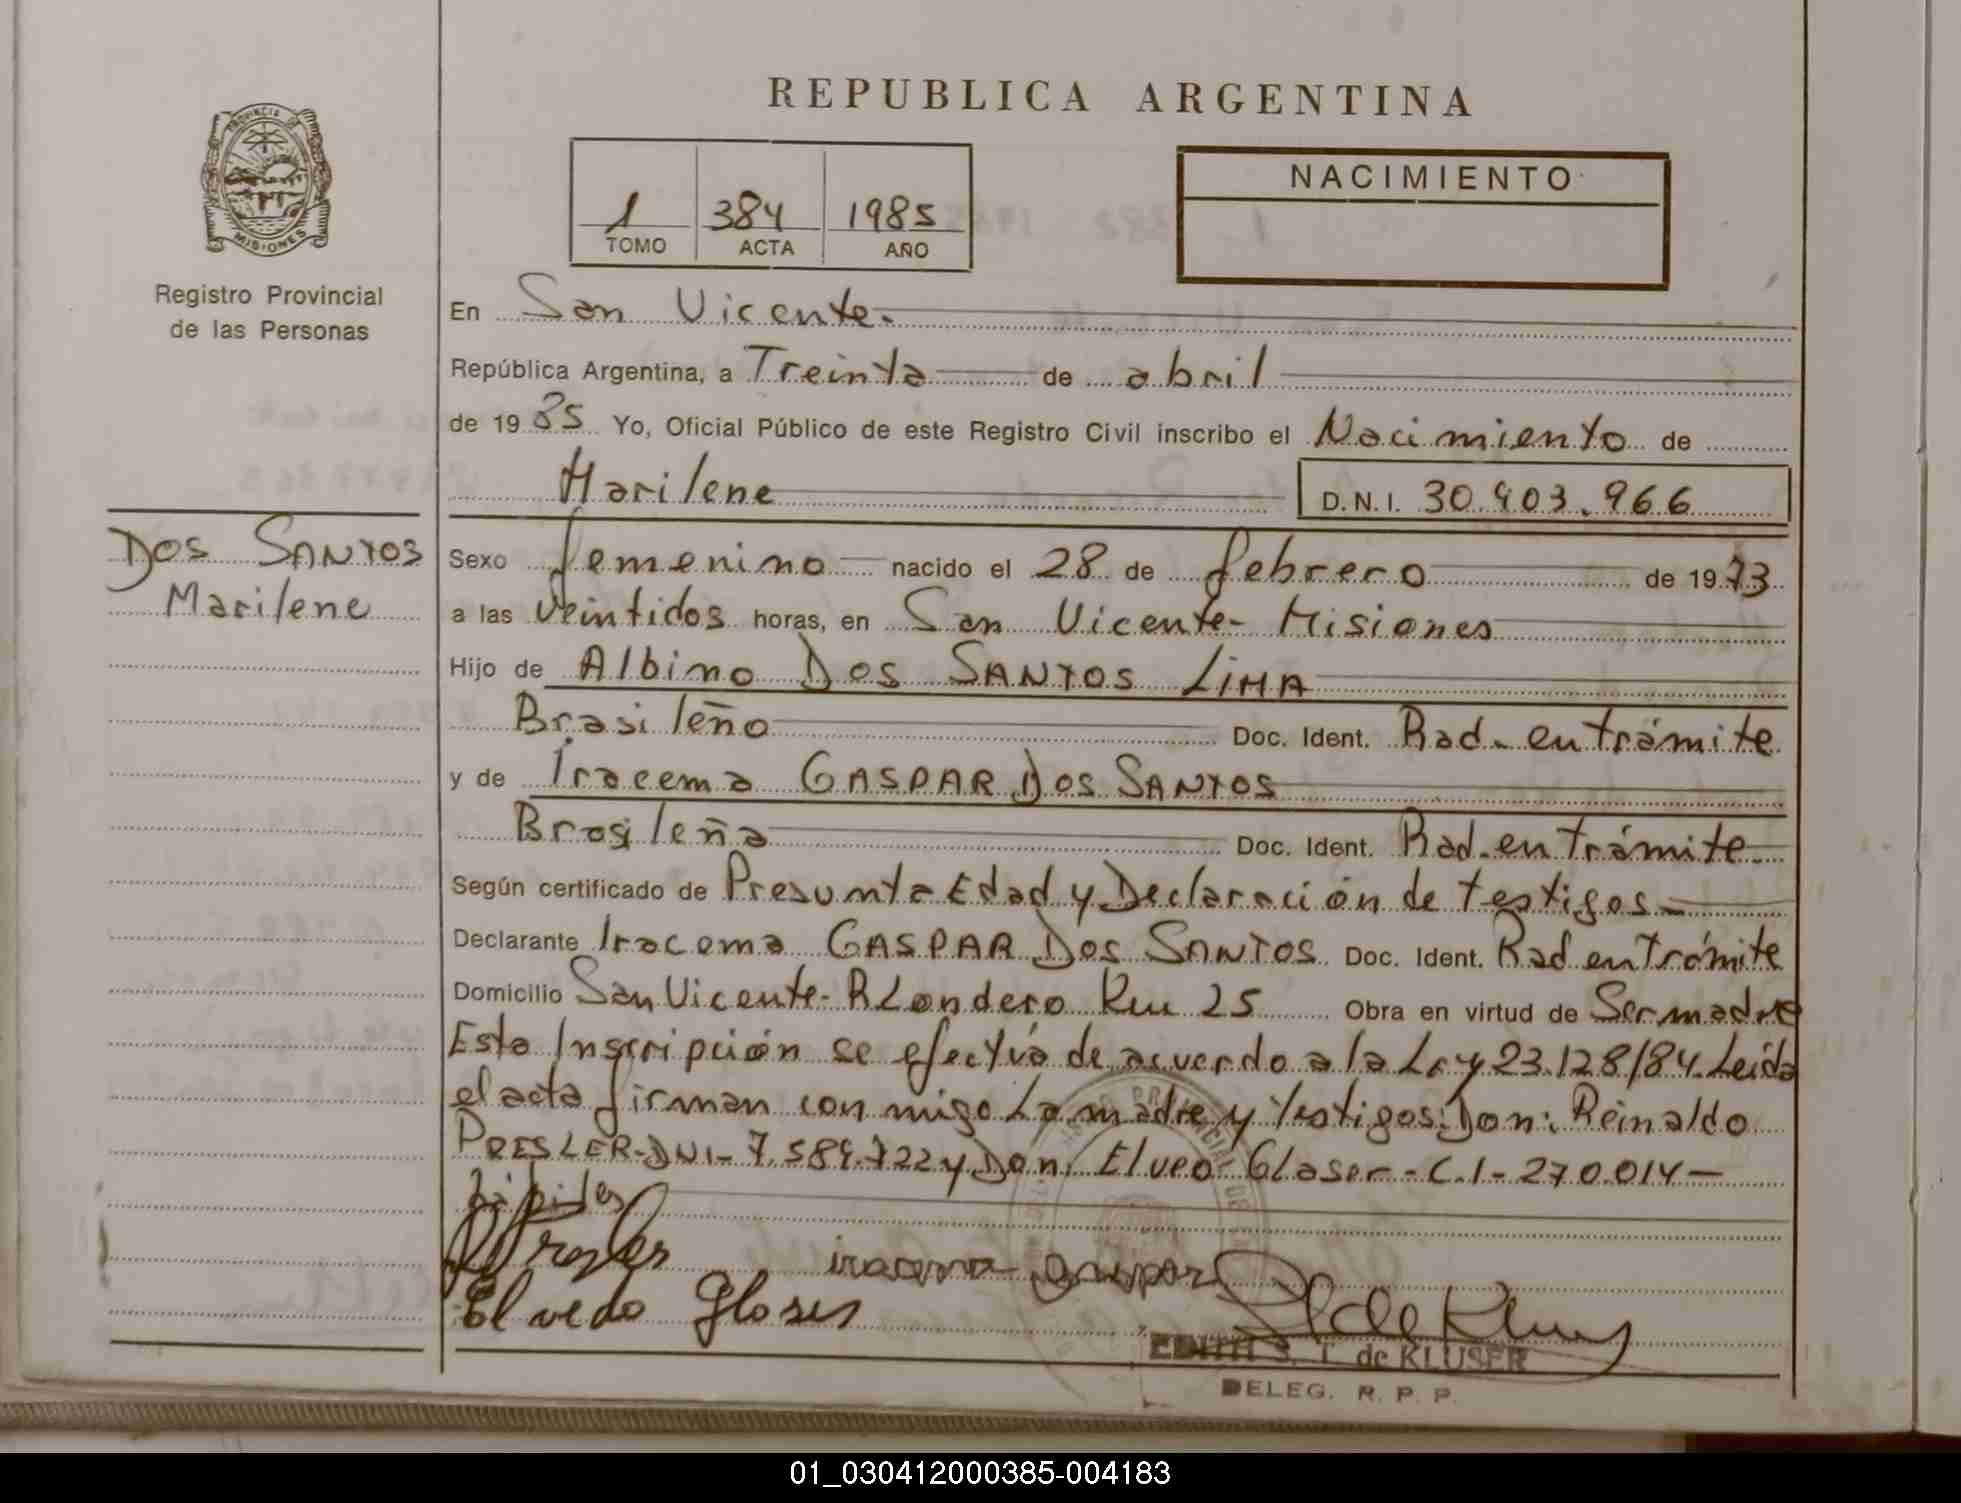 REPUBLICA ARGENTINA
PROVINCIA DE
MISIONES
Registro Provincial
de las Personas
1 384 1985
TOMO ACTA AÑO
NACIMIENTO
En San Vicente.
República Argentina, a Treinta de abril
de 1985 Yo, Oficial Público de este Registro Civil inscribo el Nacimiento de
Marilene D.N.I. 30.903.966
DOS SANTOS
Marilene
Sexo femenino nacido el 28 de febrero de 1973
a las veintidos horas, en San Vicente- Misiones
Hijo de Albino DOS SANTOS LIMA
Brasileño Doc. Ident. Rad. en trámite
y de Iracema GASPAR DOS SANTOS
Brasileña Doc. Ident. Rad. en trámite
Según certificado de Presunta Edad y Declaración de testigos-
Declarante Iracema GASPAR DOS SANTOS Doc. Ident. Rad en trámite
Domicilio San Vicente- R Londero Km 25 Obra en virtud de Ser madre
Esta Inscripción se efectúa de acuerdo a la Ley 23.128/84. Leida
el acta firman con migo La madre y testigos: Don: Reinaldo
PRESLER-DNI- 7.584.722 y Don: Elveo Glaser- C.I- 270.014-
iracema Gaspar
Elvedo Glaser
EDITH S. T. de KLUSER
DELEG. R. P. P.
01_030412000385-004183